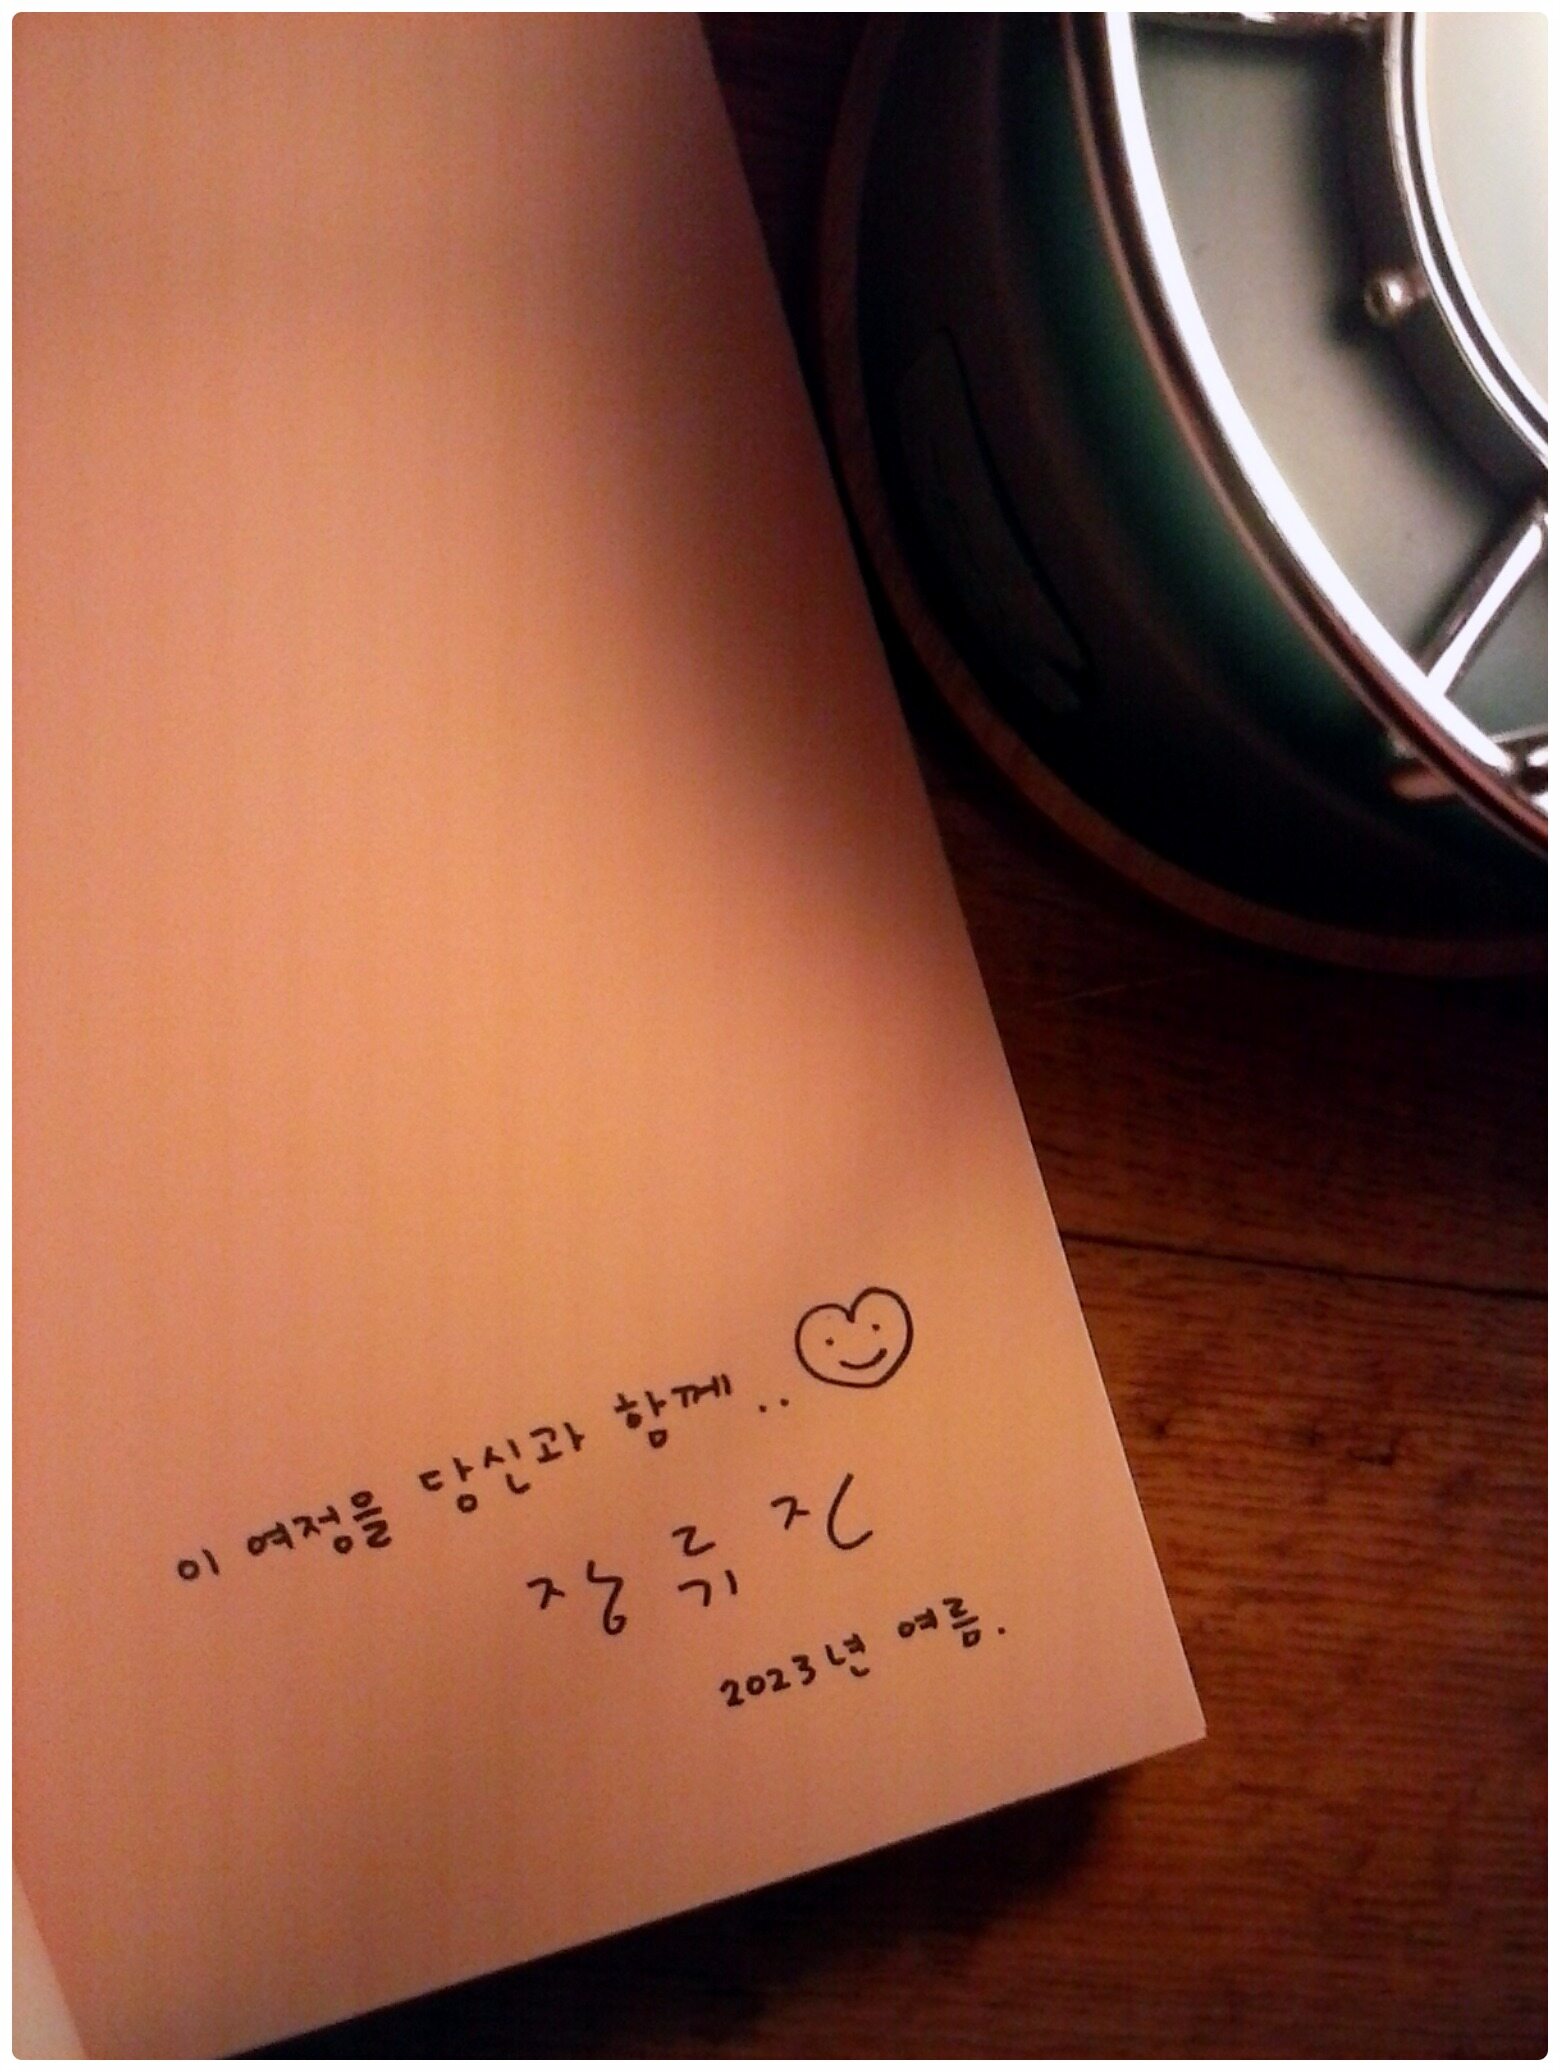 이 여정을 당신과 함께..
장류진
2023년 여름.